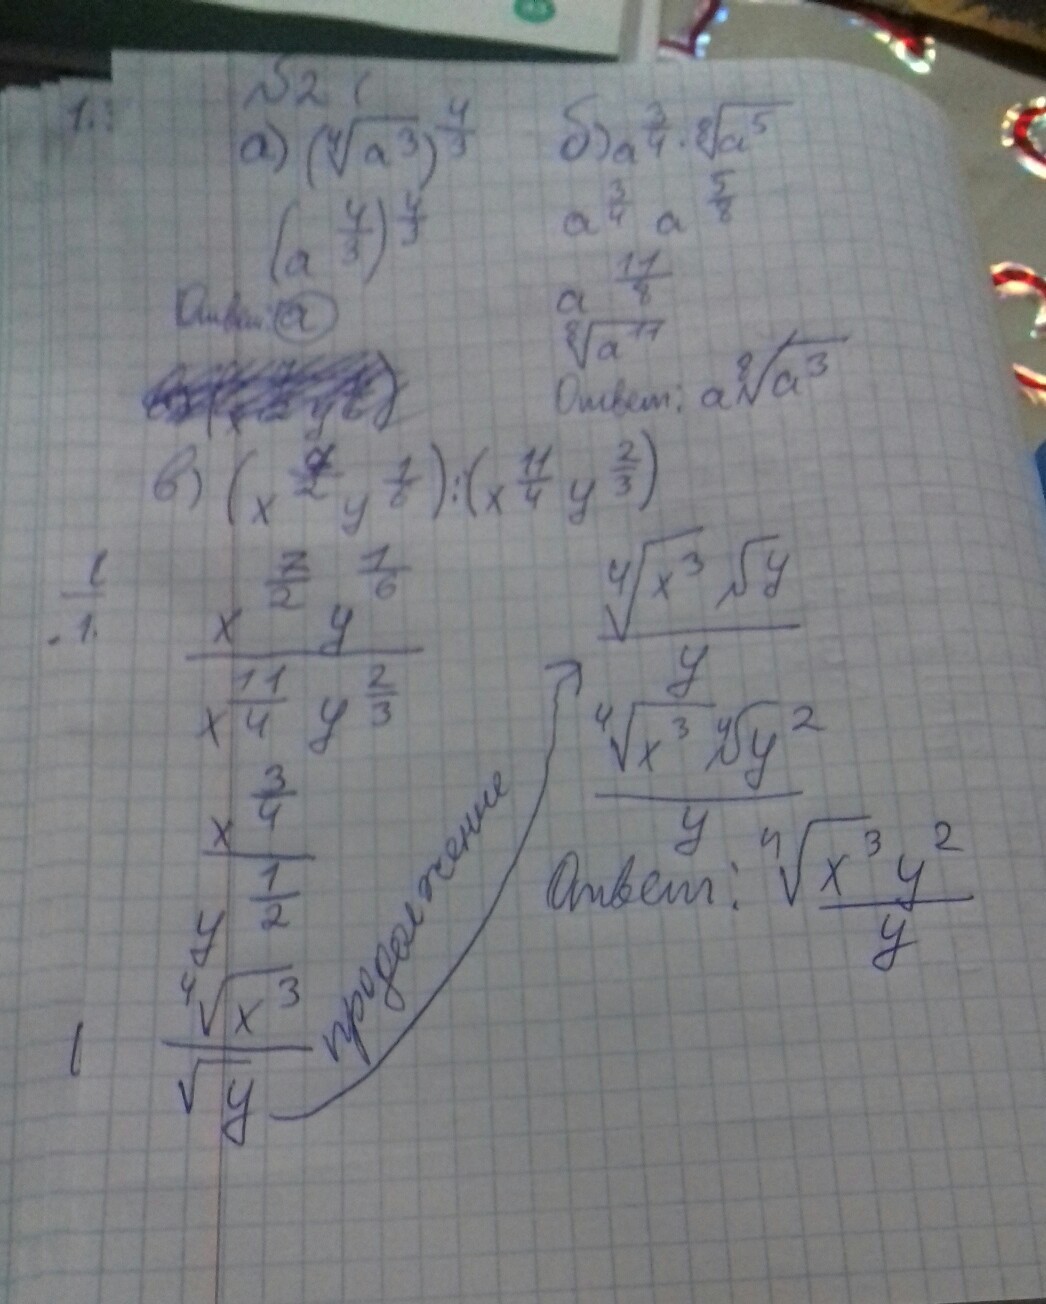 №2
а) (⁴√a³)^(4/3)
(a^(4/3))^(4/3)
Ответ: a
б) a^(3/4) · ⁸√a⁵
a^(3/4) a^(5/8)
a^(11/8)
⁸√a¹¹
Ответ: a ⁸√a³
в) (x^(7/2) y^(1/6)) : (x^(11/4) y^(2/3))
x^(7/2) y^(1/6)
x^(11/4) y^(2/3)
x^(3/4)
y^(1/2)
⁴√x³
√y
продолжение
⁴√x³ √y
y
⁴√x³ ⁴√y²
y
Ответ: ⁴√x³y²
y